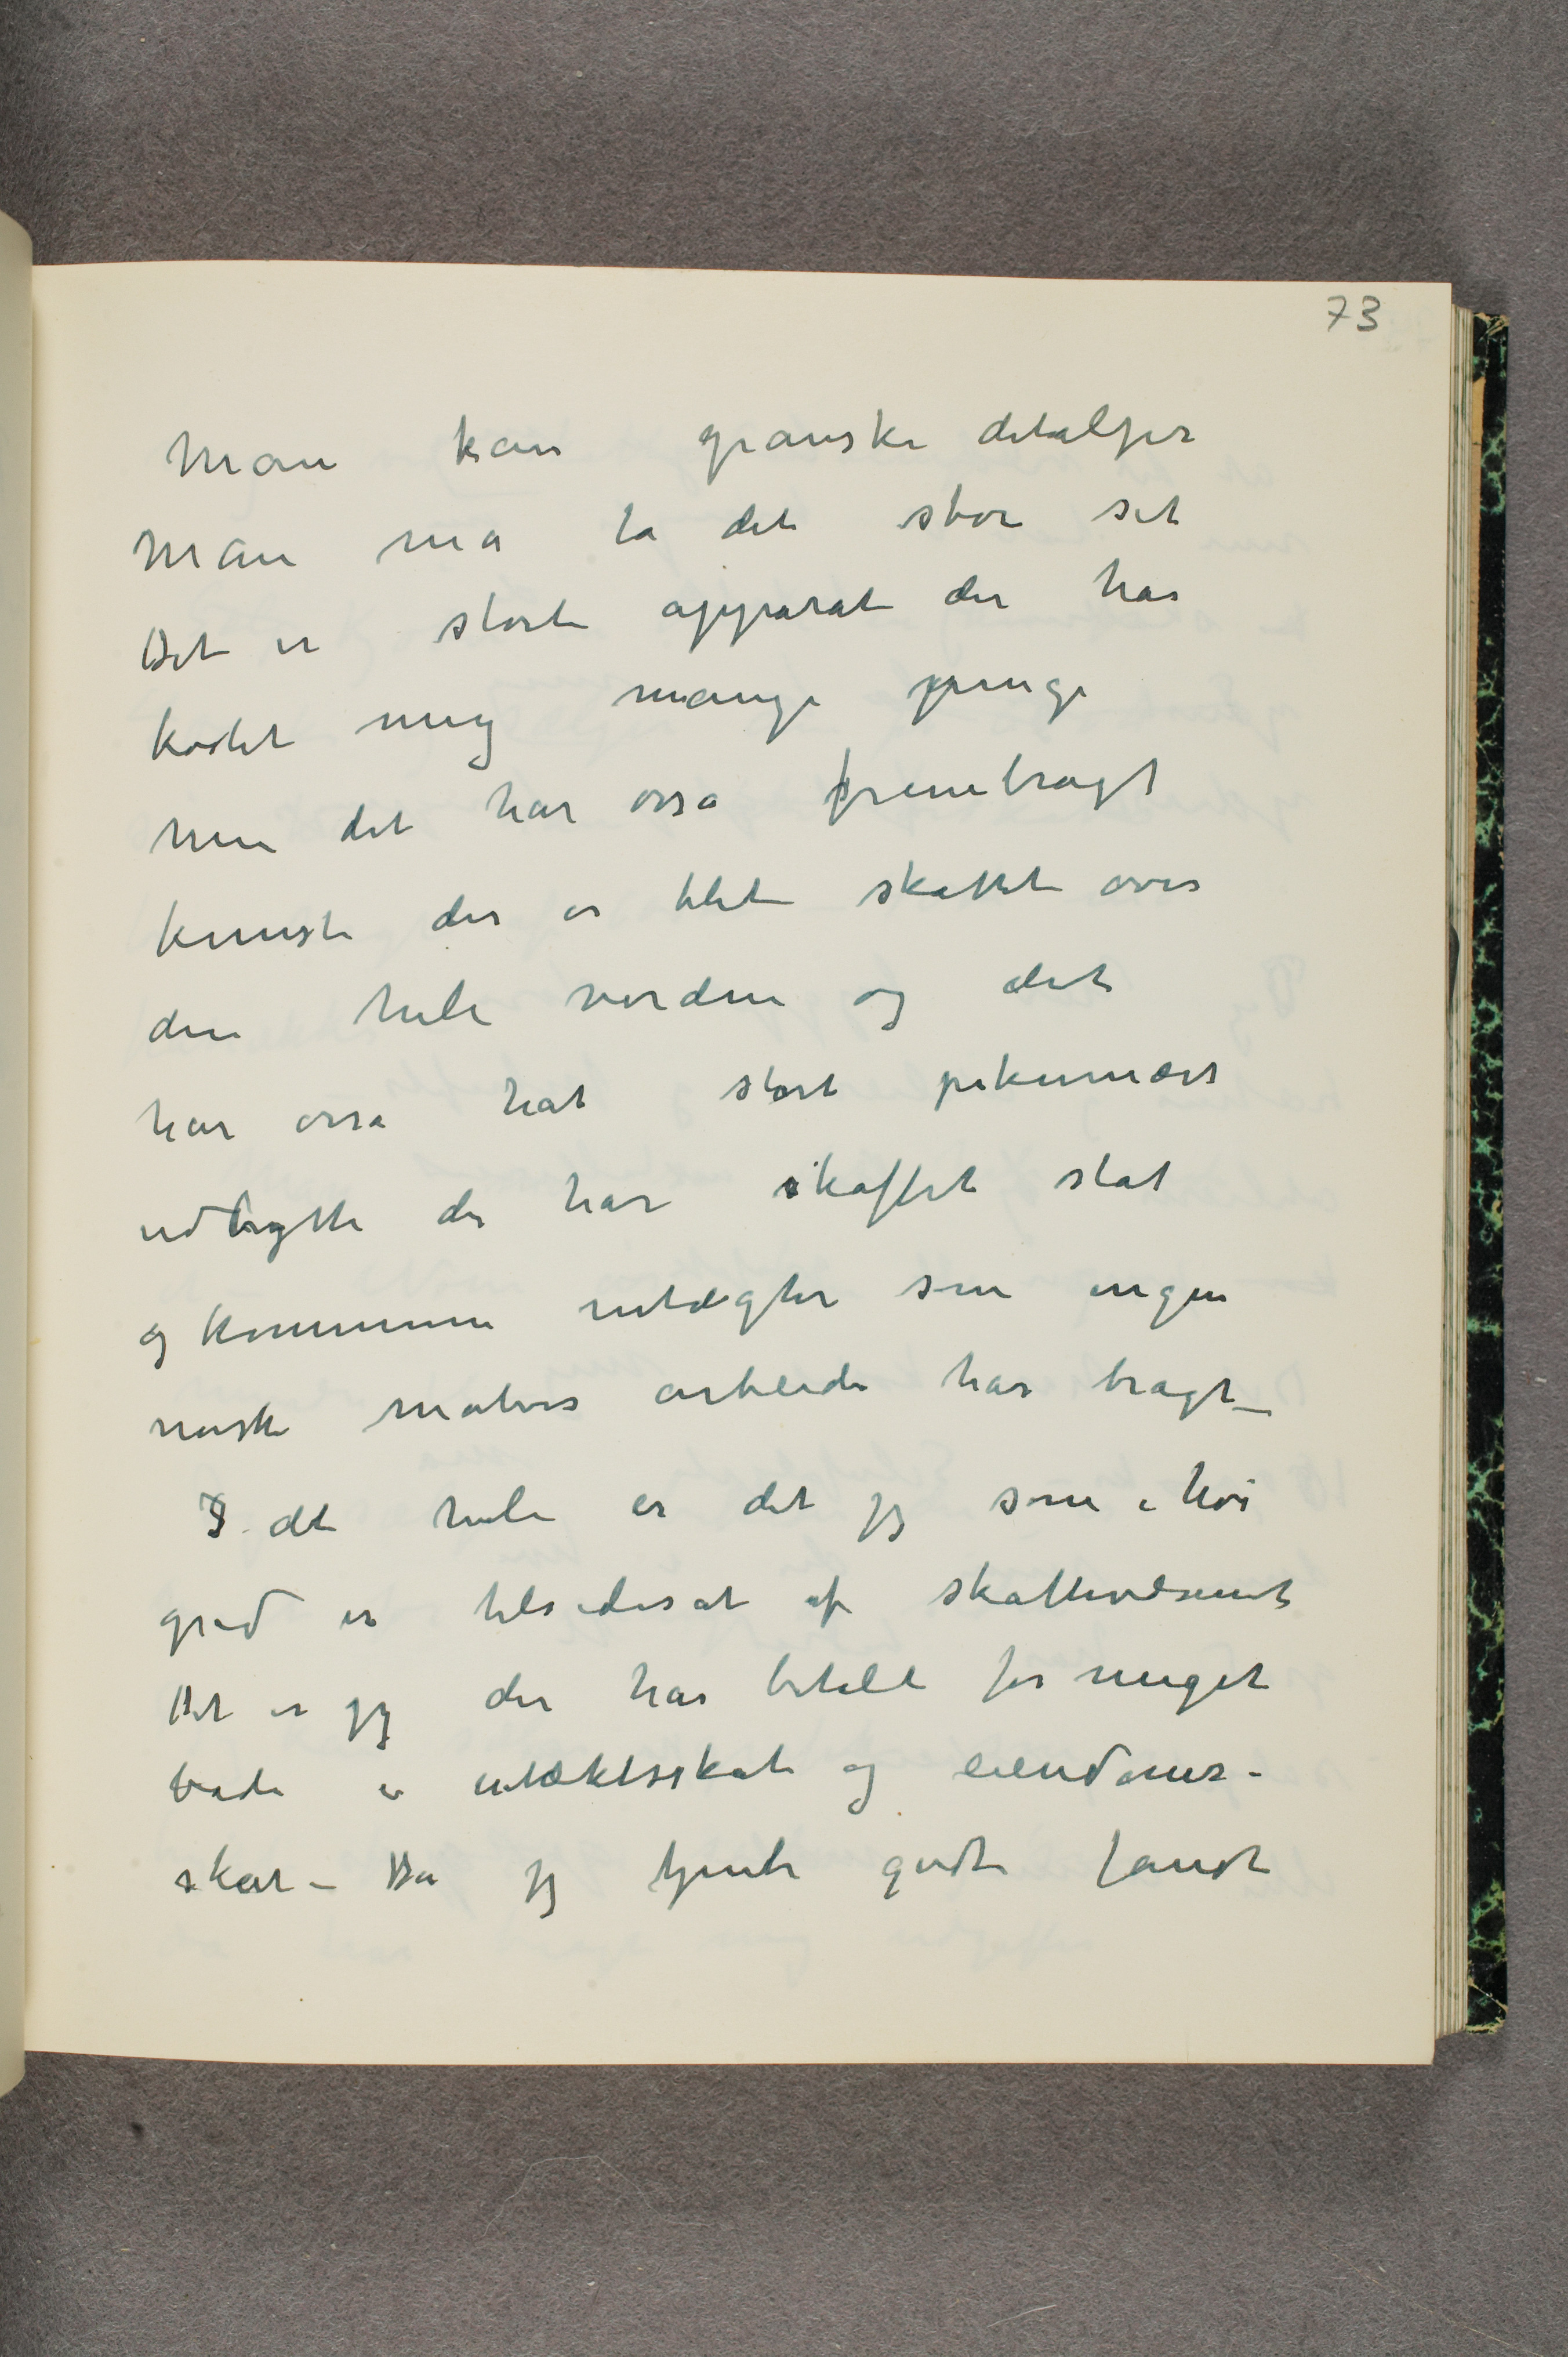 73
Man kan granske detaljer
Man må ta det stor set
Det er storte apparat der har
kostet mig mange penge
Men det har osså frembragt
kunst der er blet skattet over
den hele verden og det
har osså hat stort pekuniært
udbytte der har skaffet stat
og kommune intægter som ingen
norsk malers arbeide har bragt –
I det hele er det jeg som i høi
grad er tilsidesat af skattevæsenet
Det er jeg der har betalt for meget
både i intæktsskat og eiendoms-
skat – Da jeg tjente godt fandt